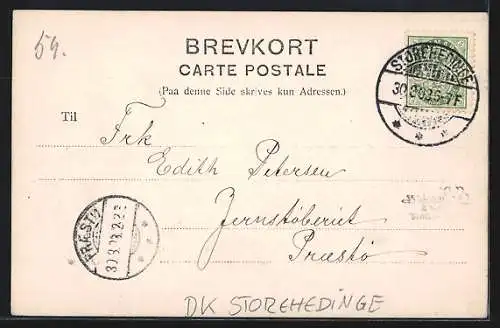 54.
BREVKORT
CARTE POSTALE
(Paa denne Side skrives kun Adressen.)
Til
STOREHEDINGE
Frk
Edith Petersen
Jernstöberiet
Præstö
PRÆSTØ
DK STOREHEDINGE